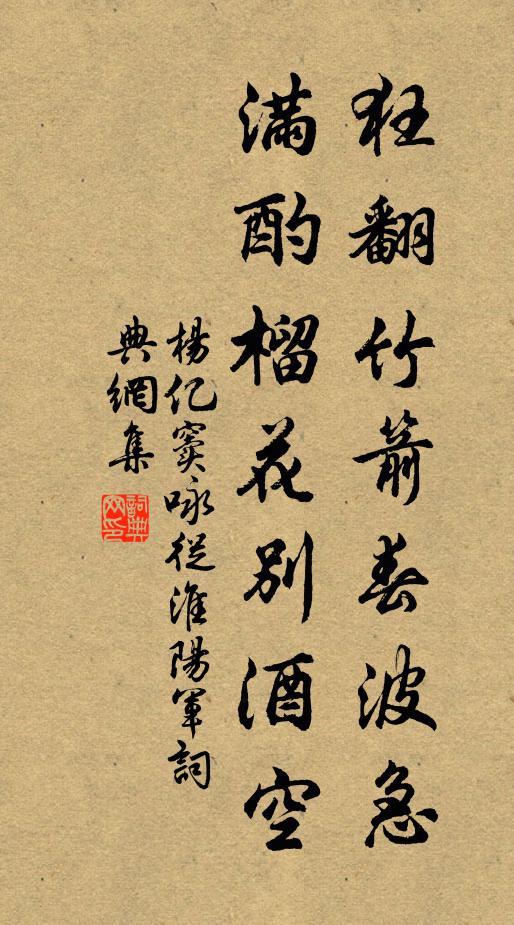 狂翻竹箭春波急
滿酌榴花別酒空
楊亿竇咏從淮陽軍詞
典網集
詞典网印